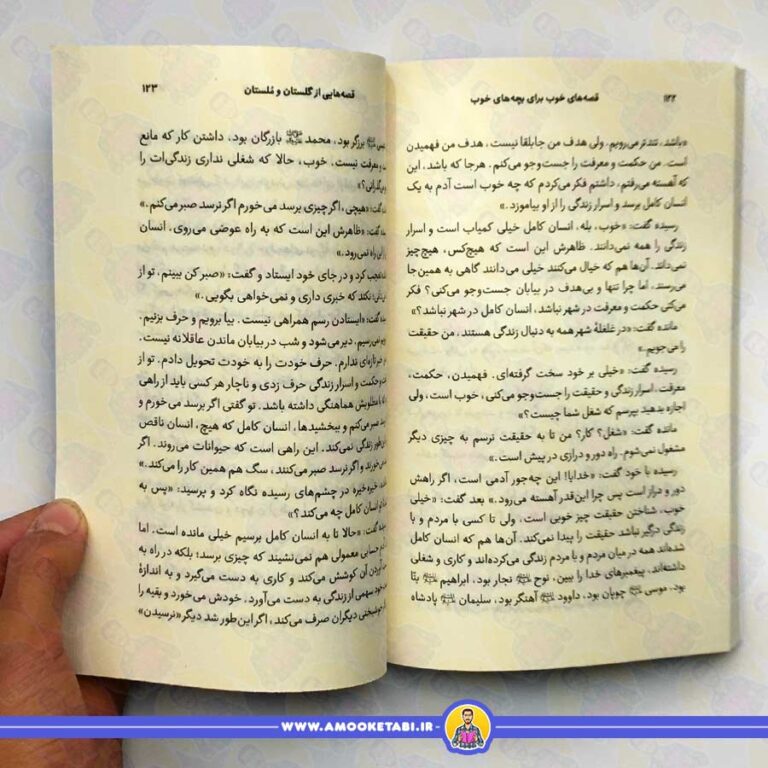 ۱۲۲
قصه‌های خوب برای بچه‌های خوب
«باشد، تندتر می‌رویم. ولی هدف من جابلقا نیست، هدف من فهمیدن
است. من حکمت و معرفت را جست‌وجو می‌کنم. هرجا که باشد، این
که آهسته می‌رفتم، داشتم فکر می‌کردم که چه خوب است آدم به یک
انسان کامل برسد و اسرار زندگی را از او بیاموزد.»
رسیده گفت: «خوب، بله، انسان کامل خیلی کمیاب است و اسرار
زندگی را همه نمی‌دانند. ظاهرش این است که هیچ‌کس، هیچ‌چیز
نمی‌داند. آن‌ها هم که خیال می‌کنند خیلی می‌دانند گاهی به همین‌جا
می‌رسند، اما چرا تنها و بی‌هدف در بیابان جست‌وجو می‌کنی؟ فکر
می‌کنی حکمت و معرفت در شهر نباشد، انسان کامل در شهر نباشد؟»
مانده گفت: «در غلغلهٔ شهر همه به دنبال زندگی هستند، من حقیقت
را می‌جویم.»
رسیده گفت: «خیلی بر خود سخت گرفته‌ای. فهمیدن، حکمت،
معرفت، اسرار زندگی و حقیقت را جست‌وجو می‌کنی، خوب است، ولی
اجازه بدهید بپرسم که شغل شما چیست؟»
مانده گفت: «شغل؟ کار؟ من تا به حقیقت نرسم به چیزی دیگر
مشغول نمی‌شوم. راه دور و درازی در پیش است.»
رسیده با خود گفت: «خدایا! این چه‌جور آدمی است، اگر راهش
دور و دراز است پس چرا این‌قدر آهسته می‌رود.» بعد گفت: «خیلی
خوب، شناختن حقیقت چیز خوبی است، ولی تا کسی با مردم و با
زندگی درگیر نباشد حقیقت را پیدا نمی‌کند. آن‌ها هم که انسان کامل
شده‌اند همه در میان مردم و با مردم زندگی می‌کرده‌اند و کاری و شغلی
داشته‌اند، پیغمبرهای خدا را ببین، نوح نجار بود، ابراهیم بنّا
بود، موسی چوپان بود، داوود آهنگر بود، سلیمان پادشاه
قصه‌هایی از گلستان و مُلستان
۱۲۳
برزگر بود، محمد بازرگان بود، داشتن کار که مانع
معرفت نیست. خوب، حالا که شغلی نداری زندگی‌ات را
گفت: «هیچی، اگر چیزی برسد می‌خورم اگر نرسد صبر می‌کنم.»
گفت: «ظاهرش این است که به راه عوضی می‌روی، انسان
این راه نمی‌رود.»
کرد و در جای خود ایستاد و گفت: «صبر کن ببینم، تو از
نکند که خبری داری و نمی‌خواهی بگویی.»
گفت: «ایستادن رسم همراهی نیست. بیا برویم و حرف بزنیم.
دیر می‌شود و شب در بیابان ماندن عاقلانه نیست.
تازه‌ای ندارم. حرف خودت را به خودت تحویل دادم. تو از
حکمت و اسرار زندگی حرف زدی و ناچار هر کسی باید از راهی
با مطلوبش هماهنگی داشته باشد. تو گفتی اگر برسد می‌خورم و
صبر می‌کنم و ببخشیدها، انسان کامل که هیچ، انسان ناقص
زندگی نمی‌کند. این راهی است که حیوانات می‌روند. اگر
و اگر نرسد صبر می‌کنند، سگ هم همین کار را می‌کند.»
خیره‌خیره در چشم‌های رسیده نگاه کرد و پرسید: «پس به
انسان کامل چه می‌کند؟»
گفت: «حالا تا به انسان کامل برسیم خیلی مانده است. اما
حسابی معمولی هم نمی‌نشینند که چیزی برسد؛ بلکه در راه به
آوردن آن کوشش می‌کند و کاری به دست می‌گیرد و به اندازهٔ
خود سهمی از زندگی به دست می‌آورد. خودش می‌خورد و بقیه را
دیگران صرف می‌کند، اگر این‌طور شد دیگر «نرسیدن»
WWW.AMOOKETABI.IR